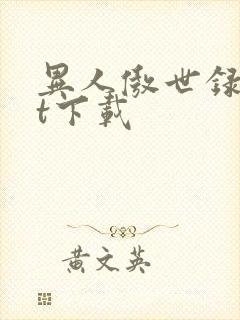 異人傲世録
t下載
黄文英